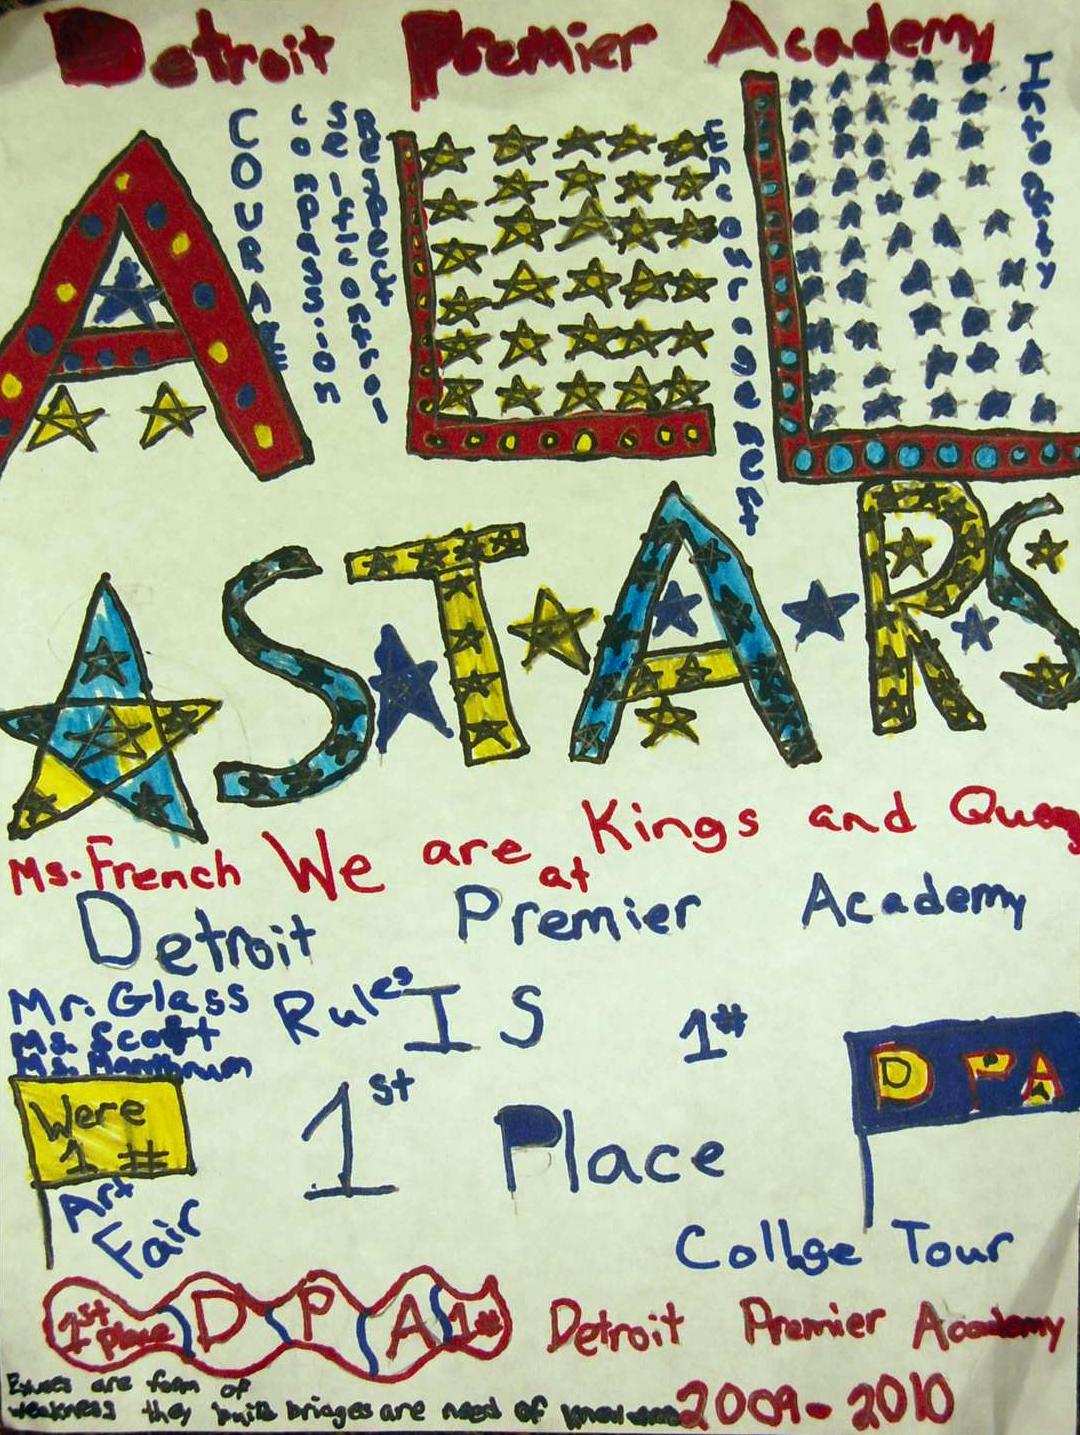 Detroit Premier Academy
COURAGE
compassion
selfcontrol
Respect
Encouragement
Integrity
ALL
STARS
Ms. French We are at Kings and
Detroit Premier Academy
Mr. Glass
Ms. Scott
Rules IS 1#
Were
1 #
1st Place
DPA
Art
Fair
Collge Tour
1st Place D P A 1#
Detroit Premier Academy
are form of
weakness they build bridges are need of
2009-2010